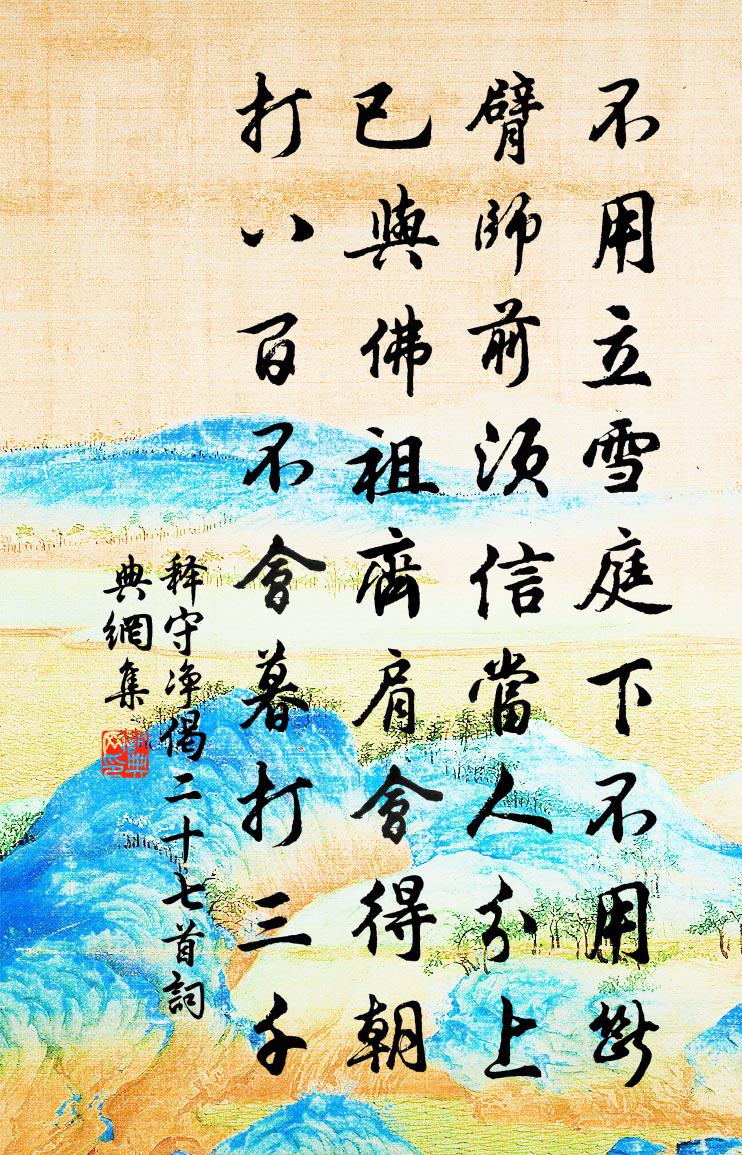 不用立雪庭下不用斷
臂師前須信當人分上
已與佛祖齊肩會得朝
打八百不會暮打三千
释守净偈二十七首詞
典網集